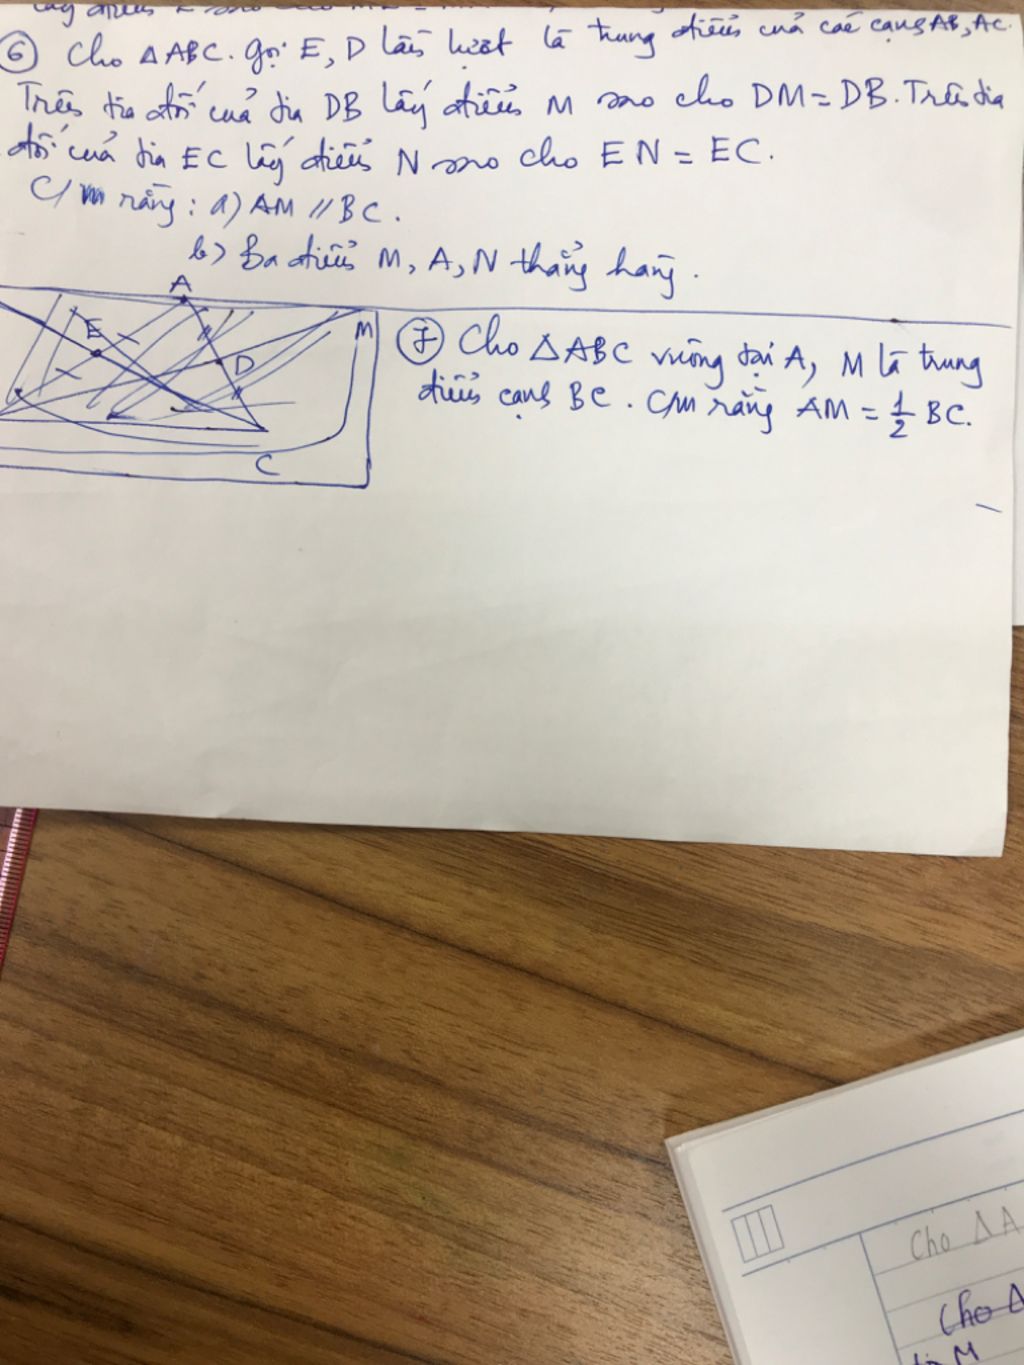 ⑥ Cho △ABC. Gọi E, D lần lượt là trung điểm của các cạnh AB, AC.
Trên tia đối của tia DB lấy điểm M sao cho DM = DB. Trên tia
đối của tia EC lấy điểm N sao cho EN = EC.
C/m rằng: a) AM // BC.
b) Ba điểm M, A, N thẳng hàng.
A
E
D
M
C
⑦ Cho △ABC vuông tại A, M là trung
điểm cạnh BC. C/m rằng AM = 1/2 BC.
Cho △ A
Cho △
M